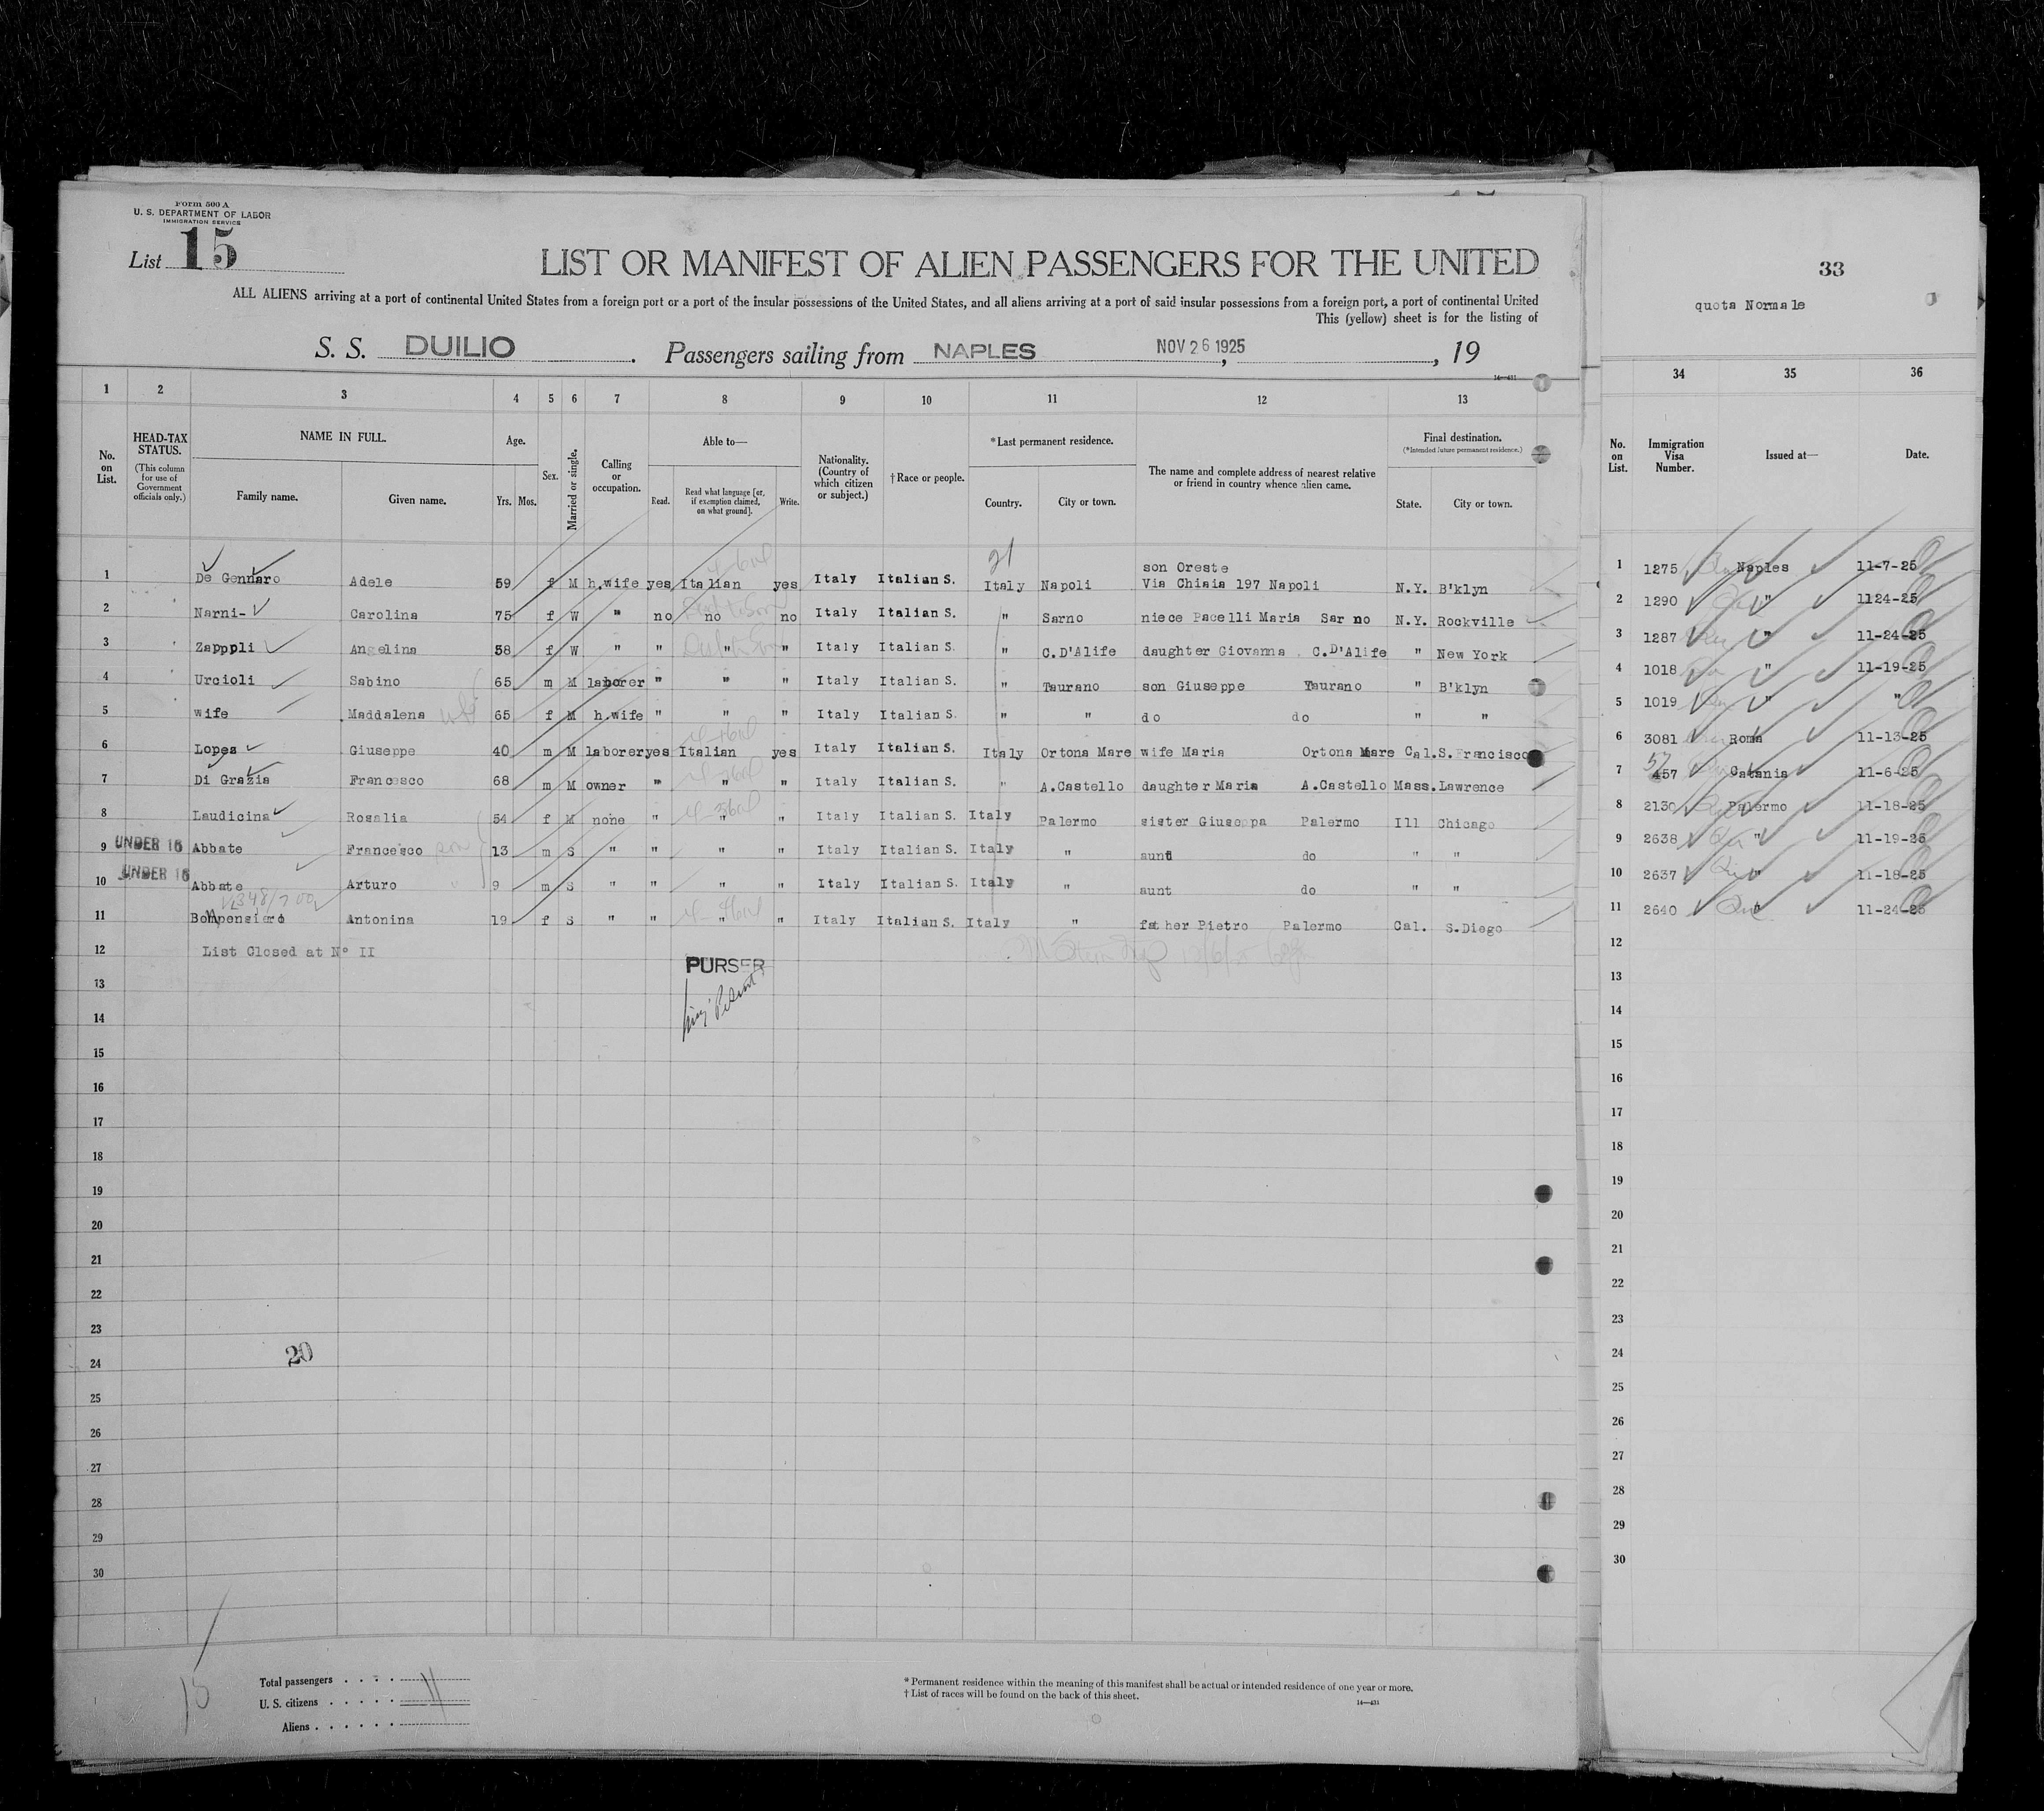 Form 500 A
U. S. DEPARTMENT OF LABOR
IMMIGRATION SERVICE
List 15
LIST OR MANIFEST OF ALIEN PASSENGERS FOR THE UNITED
ALL ALIENS arriving at a port of continental United States from a foreign port or a port of the insular possessions of the United States, and all aliens arriving at a port of said insular possessions from a foreign port, a port of continental United
This (yellow) sheet is for the listing of
S. S. DUILIO . Passengers sailing from NAPLES , NOV 26 1925 , 19
14—431
1 2 3 4 5 6 7 8 9 10 11 12 13
No. on List.
HEAD-TAX STATUS.
(This column for use of Government officials only.)
NAME IN FULL.
Family name. Given name.
Age.
Yrs. Mos.
Sex.
Married or single.
Calling or occupation.
Able to—
Read. Read what language [or, if exemption claimed, on what ground]. Write.
Nationality. (Country of which citizen or subject.)
†Race or people.
*Last permanent residence.
Country. City or town.
The name and complete address of nearest relative or friend in country whence alien came.
Final destination.
(*Intended future permanent residence.)
State. City or town.
21
son Oreste
1 De Gennaro Adele 59 f M h.wife yes Italian yes Italy Italian S. Italy Napoli Via Chiaia 197 Napoli N.Y. B'klyn
2 Narni- Carolina 75 f W " no no no Italy Italian S. " Sarno niece Pacelli Maria Sar no N.Y. Rockville
3 Zapppli Angelina 58 f W " " " " Italy Italian S. " C.D'Alife daughter Giovanna . C.D'Alife " New York
4 Urcioli Sabino 65 m M laborer " " " Italy Italian S. " Taurano son Giuseppe Taurano " B'klyn
5 wife Maddalena wife 65 f M h.wife " " " Italy Italian S. " " do do " "
6 Lopes Giuseppe 40 m M laborer yes Italian yes Italy Italian S. Italy Ortona Mare wife Maria Ortona Mare Cal. S. Francisco
7 Di Grazia Francesco 68 m M owner " " " Italy Italian S. " A.Castello daughter Maria A.Castello Mass. Lawrence
8 Laudicina Rosalia 54 f M none " " " Italy Italian S. Italy Palermo sister Giuseppa Palermo Ill Chicago
9 UNDER 16 Abbate Francesco 13 m S " " " " Italy Italian S. Italy " aunt do " "
10 UNDER 16 Abbate Arturo 9 m S " " " " Italy Italian S. Italy " aunt do " "
11 Bompensiero Antonina 19 f S " " " " Italy Italian S. Italy " father Pietro Palermo Cal. S.Diego
12 List Closed at N° II
PURSER
13
14
15
16
17
18
19
20
21
22
23
24
20
25
26
27
28
29
30
15
Total passengers . . . . 11
U. S. citizens . . . . .
Aliens . . . . . .
* Permanent residence within the meaning of this manifest shall be actual or intended residence of one year or more.
† List of races will be found on the back of this sheet.
14—431
33
quota Normale
34 35 36
No. on List.
Immigration Visa Number.
Issued at—
Date.
1 1275 Naples 11-7-25
2 1290 " 1124-25
3 1287 " 11-24-25
4 1018 " 11-19-25
5 1019 " "
6 3081 Roma 11-13-25
7 457 Catania 11-6-25
8 2130 Palermo 11-18-25
9 2638 " 11-19-25
10 2637 " 11-18-25
11 2640 " 11-24-25
12
13
14
15
16
17
18
19
20
21
22
23
24
25
26
27
28
29
30